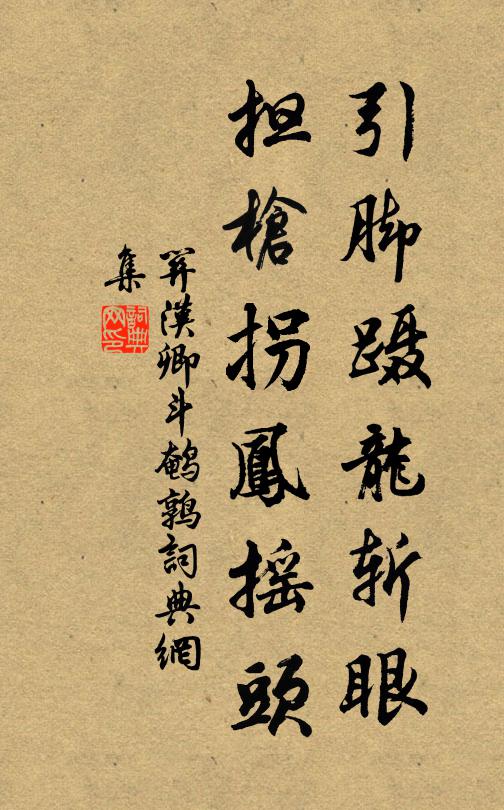 引脚蹑龍斩眼
担槍拐鳳摇頭
關漢卿斗鵪鶉詞典網
集
詞典
网印